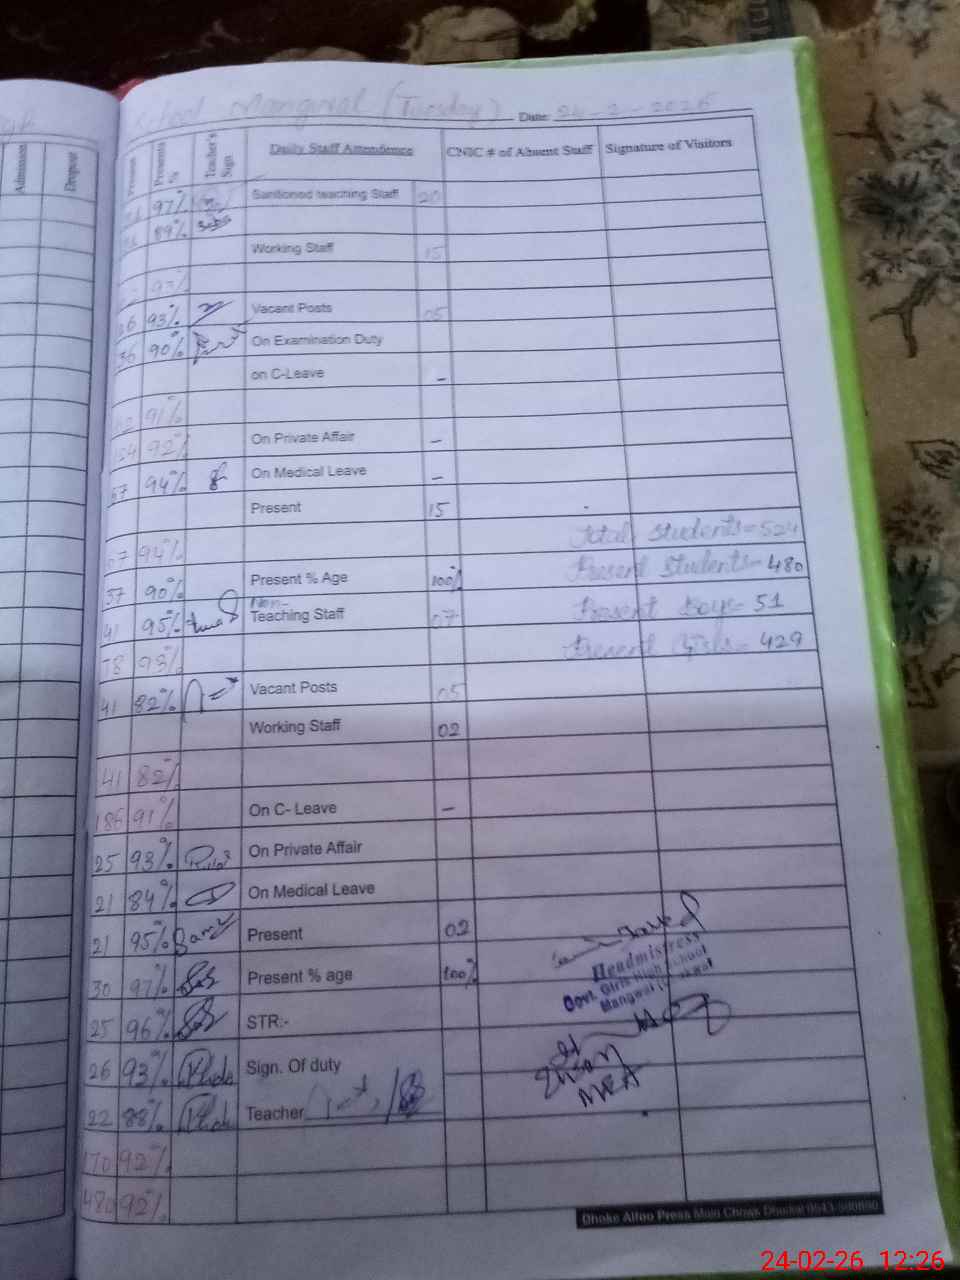 School Mangwal (Tuesday) Date: 24-2-2026
Admission Dropout Present Presents % Teacher's Sign Daily Staff Attendence CNIC # of Absent Staff Signature of Visitors
97% Sanitioned teaching Staff 20
89%
Working Staff 15
93%
36 93% Vacant Posts 05
36 90% On Examination Duty
on C-Leave -
91%
92% On Private Affair -
57 94% On Medical Leave -
Present 15
Total Students = 524
57 94%
Present Students = 480
37 90% Present % Age 100%
Non-
41 95% Teaching Staff 07 Present Boys = 51
78 93% Present Girls = 429
41 82% Vacant Posts 05
Working Staff 02
41 82%
186 91% On C- Leave -
25 93% On Private Affair
21 84% On Medical Leave
21 95% Present 02
30 97% Present % age 100%
Headmistress
Govt. Girls High School
Mangwal
25 96% STR:-
26 93% Sign. Of duty
22 88% Teacher
MEA
170 92%
480 92%
Dhoke Alfoo Press Main Chowk Dhudial 0543-
24-02-26 12:26